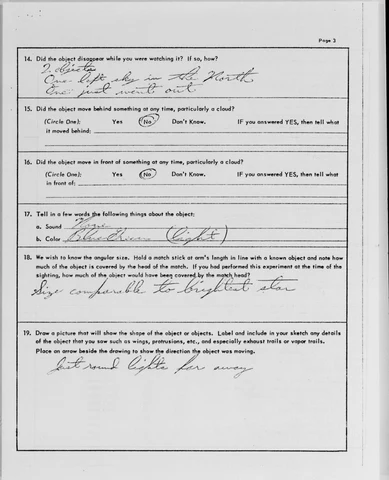 Page 3
14. Did the object disappear while you were watching it? If so, how?
2 objects
One left sky in the North
One just went out
15. Did the object move behind something at any time, particularly a cloud?
(Circle One): Yes No Don't Know. IF you answered YES, then tell what
it moved behind:
16. Did the object move in front of something at any time, particularly a cloud?
(Circle One): Yes No Don't Know. IF you answered YES, then tell what
in front of:
17. Tell in a few words the following things about the object:
a. Sound None
b. Color Blue Green (light)
18. We wish to know the angular size. Hold a match stick at arm's length in line with a known object and note how
much of the object is covered by the head of the match. If you had performed this experiment at the time of the
sighting, how much of the object would have been covered by the match head?
Size comparable to brightest star
19. Draw a picture that will show the shape of the object or objects. Label and include in your sketch any details
of the object that you saw such as wings, protrusions, etc., and especially exhaust trails or vapor trails.
Place an arrow beside the drawing to show the direction the object was moving.
Just round lights far away